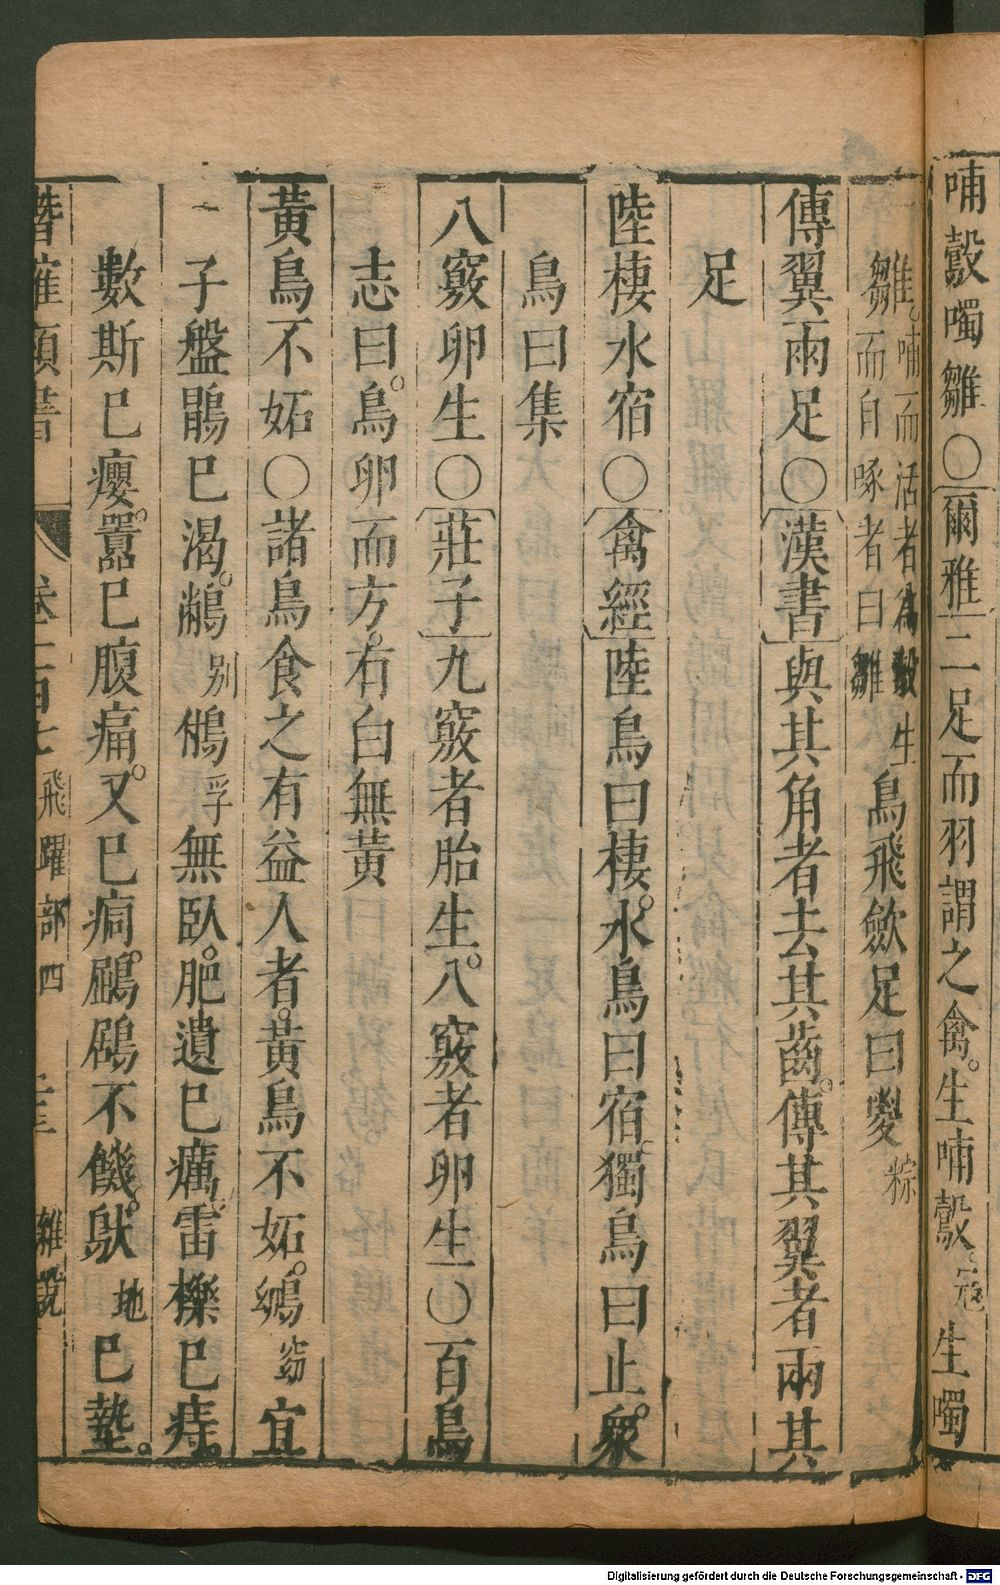 哺鷇噣雛○〔爾雅〕二足而羽謂之禽。生哺鷇寇生噣
雛。哺而活者爲鷇生
芻而自啄者曰雛
鳥飛斂足曰翪粽
傳翼兩足○〔漢書〕與其角者去其齒。傳其翼者兩其
足
陸棲水宿○〔禽經〕陸鳥曰棲。水鳥曰宿。獨鳥曰止。衆
鳥曰集
八竅卵生○〔莊子〕九竅者胎生。八竅者卵生○百鳥
志曰。鳥卵而方。有白無黃
黃鳥不妬○諸鳥食之有益人者。黃鳥不妬。鴢窈宜
子盤鶻已渇。鷩別鵂孚無臥。肥遺已癘。雷櫟已痔。
數斯已癭。嚻已腹痛。又已痌。鶌鶋不饑。䳁地已墊。
潛確類書 卷一百七 飛躍部四 雜說
Digitalisierung gefördert durch die Deutsche Forschungsgemeinschaft - DFG